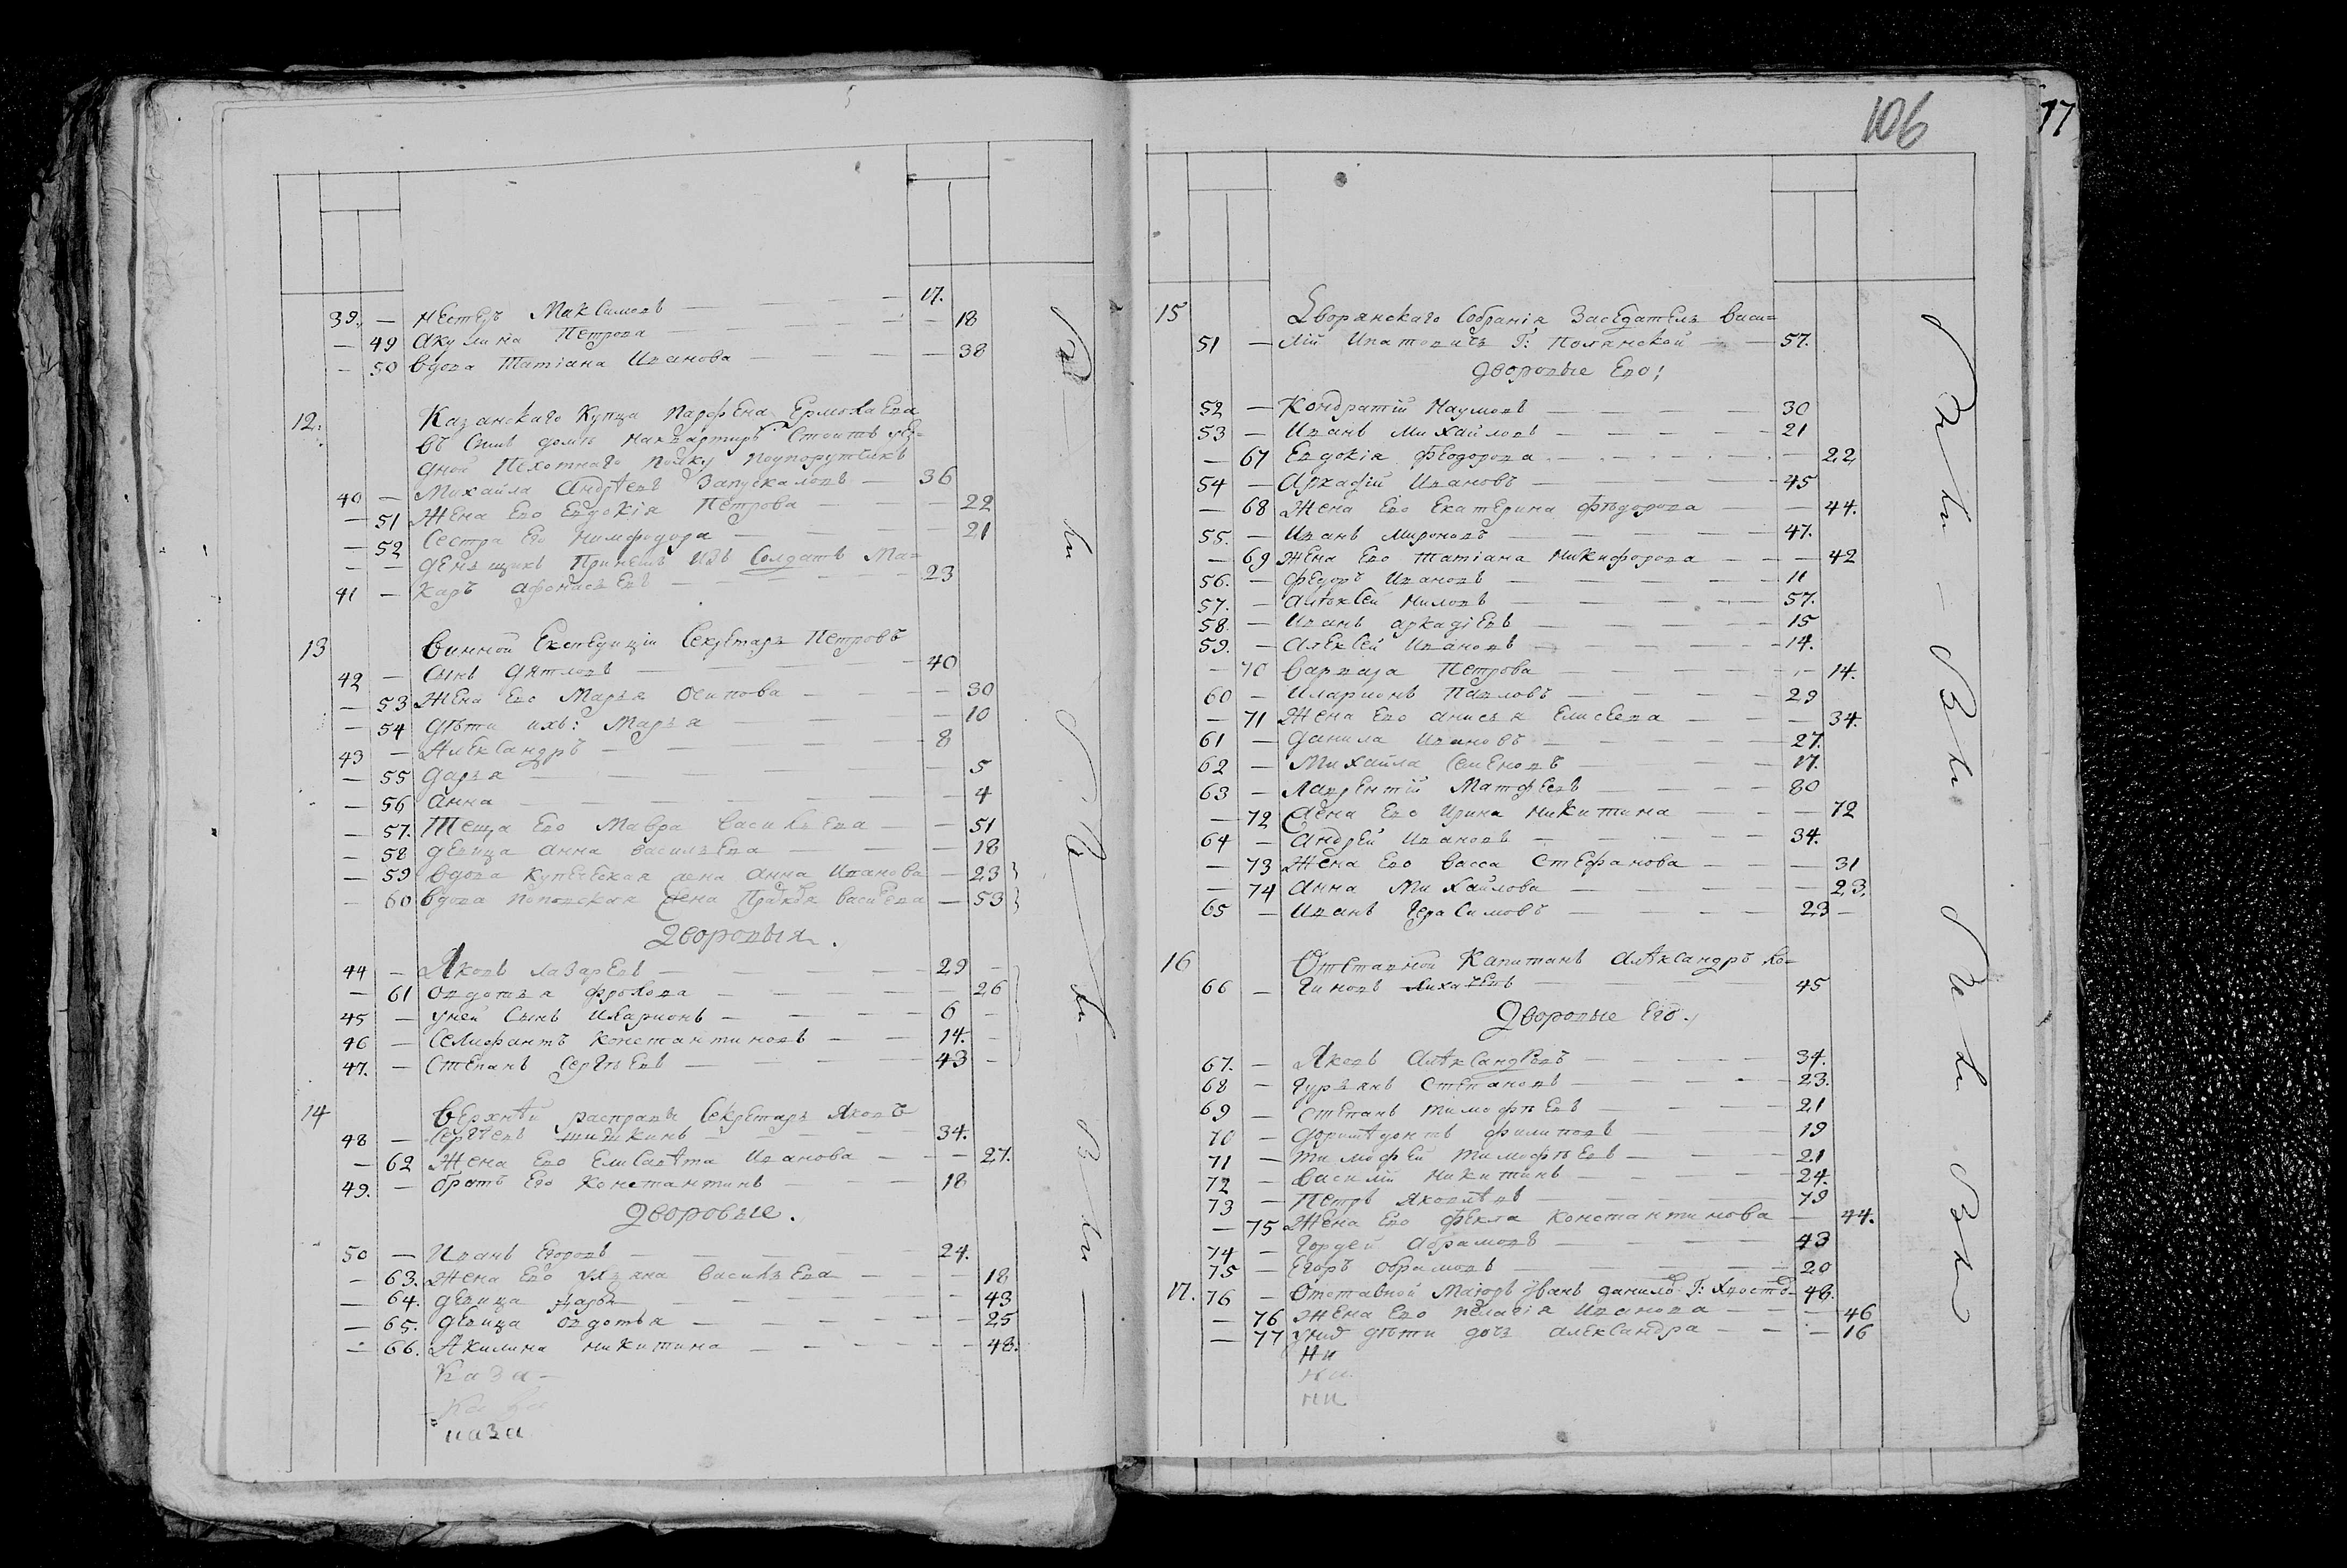 39. — Нестеръ Максимовъ — 17.
— 49 Акулина Петрова — 18
— 50 Вдова Татіана Иванова — 38
12. Казанскаго Купца Парфена Ермолаева
въ домѣ наквартирѣ Стоитъ
Пѣхотнаго полку подпорутчикъ
40 — Михайла Андрѣевъ Запускаловъ — 36
— 51 Жена Ево Евдокія Петрова — 22
— 52 Сестра Ево Нимфодора — 21
— — денщикъ изъ Солдатъ Ма=
41 — каръ Афонасьевъ — 23
13 Винной Експедиціи Секретарь Петровъ
42 — Сынъ Дятловъ — 40
— 53 Жена Ево Марья Осипова — 30
— 54 Дѣти ихъ: Марья — 10
43 — Александръ — 8
— 55 Дарья — 5
— 56 Анна — 4
— 57. Теща Ево Мавра Васильева — 51
— 58 Девица Анна Васильева — 18
— 59 Вдова Купеческая жена Анна Иванова — 23
— 60 Вдова Поповская Жена Васильева — 53
Дворовыя.
44 — Яковъ Лазаревъ — 29
— 61 Овдотья Фролова — 26
45 — у ней Сынъ Иларионъ — 6
46 — Селифантъ Константиновъ — 14.
47. — Степанъ Сергѣевъ — 43
14 Верхнѣй расправы Секретарь Яковъ
48 — Сергѣевъ Шишкинъ — 34.
— 62 Жена Ево Елисавѣта Иванова — 27.
49. — братъ Ево Константинъ — 18
Дворовые.
50 — Иванъ Егоровъ — 24.
— 63. Жена Ево Ульяна Васильева — 18
— 64. Девица Дарья — 43
— 65. Девица Овдотья — 25
— 66. Акилина Никитина — 48.
Каза-
наза
106
77
15 Дворянскаго Собранія Заседатель Васи=
51 — лій Ипатовичъ Г: Полянской — 57.
Дворовые Ево;
52 — Кондратій Наумовъ — 30
53 — Иванъ Михайловъ — 21
— 67 Евдокія Феодорова — 22
54 — Аркадій Ивановъ — 45
— 68 Жена Ево Екатерина Фѣдорова — 44.
55. — Иванъ Мироновъ — 47.
— 69 Жена Ево Татіана Никифорова — 42
56. — Федоръ Ивановъ — 11
57. — Алѣксей Ниловъ — 57.
58. — Иванъ Аркадіевъ — 15
59. — Алексей Ивановъ — 14.
— 70 Варвара Петрова — 14.
60 — Иларионъ Павловъ — 29
— 71 Жена Ево Анисья Елисеева — 34.
61 — Данила Ивановъ — 27.
62 — Михайла Семеновъ — 17.
63 — Лаврентій Матфеевъ — 80
— 72 Жена Ево Ирина Никитина — 72
64 — Андрей Ивановъ — 34.
— 73 Жена Ево Васса Стефанова — 31
— 74 Анна Михайлова — 23.
65 — Иванъ Герасимовъ — 23 —
16 Отставной Капитанъ Алѣксандръ Ло-
66 — гиновъ Лихачевъ — 45
Дворовые Его.
67. — Яковъ Алѣксандровъ — 34.
68 — Гурьянъ Степановъ — 23.
69 — Степанъ Тимофѣевъ — 21
70 — Дормѣдонтъ Филиповъ — 19
71 — Тимофей Тимофѣевъ — 21
72 — Василій Никитинъ — 24.
73 — Петръ Яковлѣвъ — 79
— 75 Жена Ево Фекла Константинова — 44.
74 — Гордей Абрамовъ — 43
75 — Егоръ Обрамовъ — 20
17. 76 — Отставной Маіоръ Иванъ Данило Г: Хвосто — 46.
— 76 Жена Ево Пелагія Иванова — 46
— 77 у нихъ дѣти дочь Александра — 16
Ни
ни
ни